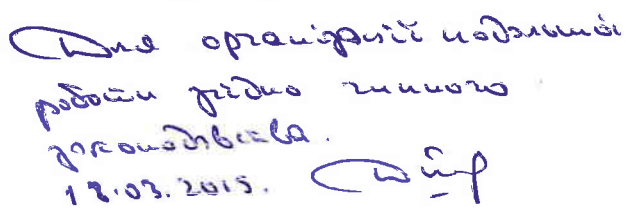 Для організації подальшої
роботи згідно чинного
законодавства.
18.03.2015.